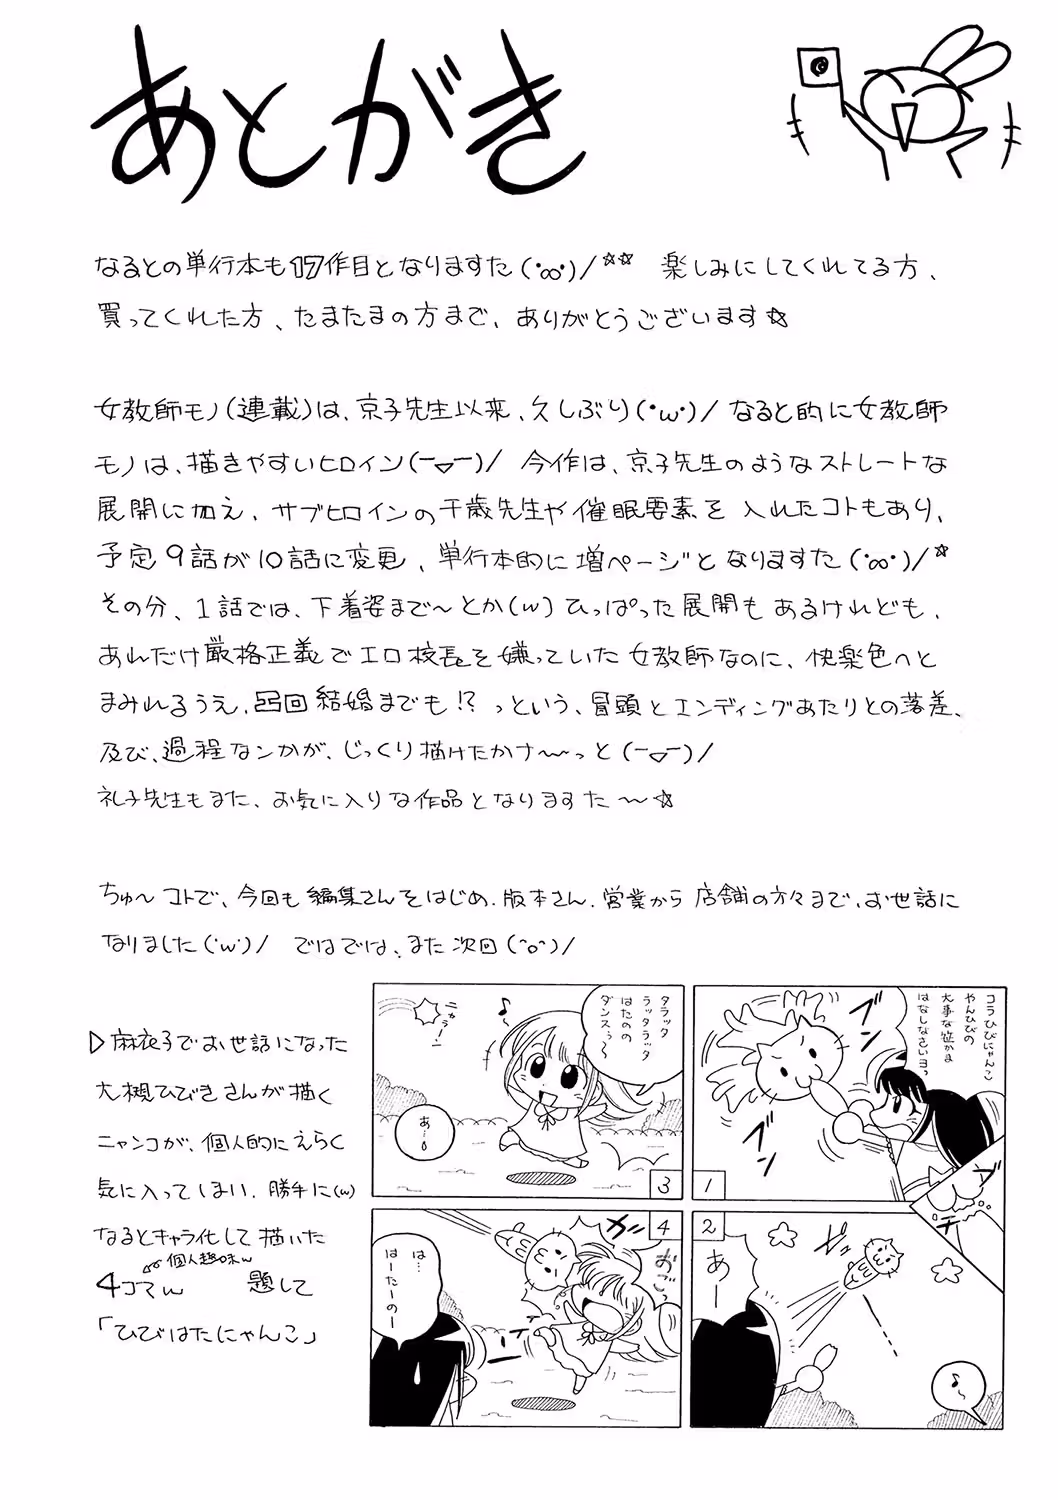 あとがき
なるとの単行本も17作目となりますた(・∞・)/☆☆ 楽しみにしてくれてる方、
買ってくれた方、たまたまの方まで、ありがとうございます☆
女教師モノ(連載)は、京子先生以来、久しぶり(・w・)/ なると的に女教師
モノは、描きやすいヒロイン(ー▽ー)/ 今作は、京子先生のようなストレートな
展開に加え、サブヒロインの千歳先生や催眠要素を入れたコトもあり、
予定9話が10話に変更、単行本的に増ページとなりますた(・∞・)/☆
その分、1話では、下着姿まで〜とか(w)ひっぱった展開もあるけれども、
あれだけ厳格正義でエロ校長を嫌っていた女教師なのに、快楽色へと
まみれるうえ、凸凹結婚までも!?っという、冒頭とエンディングあたりとの落差、
及び、過程なンかが、じっくり描けたかナ〜っと(ー▽ー)/
礼子先生もまた、お気に入りな作品となりますた〜☆
ちゅ〜コトで、今回も編集さんをはじめ、版本さん、営業から店舗の方々まで、お世話に
なりました(・w・)/ ではでは、また次回(^o^)/
▷麻衣子でお世話になった
大槻ひびきさんが描く
ニャンコが、個人的にえらく
気に入ってしまい、勝手に(w)
なるとキャラ化して描いた
個人趣味w
4コマw 題して
「ひびはたにゃんこ」
コラひびにゃんこ
やんひびの
大事な
はなしなさいヨっ
ブン
ブン
1
2
あー
ゼッ
♪〜
タラッタ
ラッタラッタ
はたのの
ダンスぅ〜
♪
ニャうー!
あ…
3
4
ガッ
おごっ
は…
はーたーのー